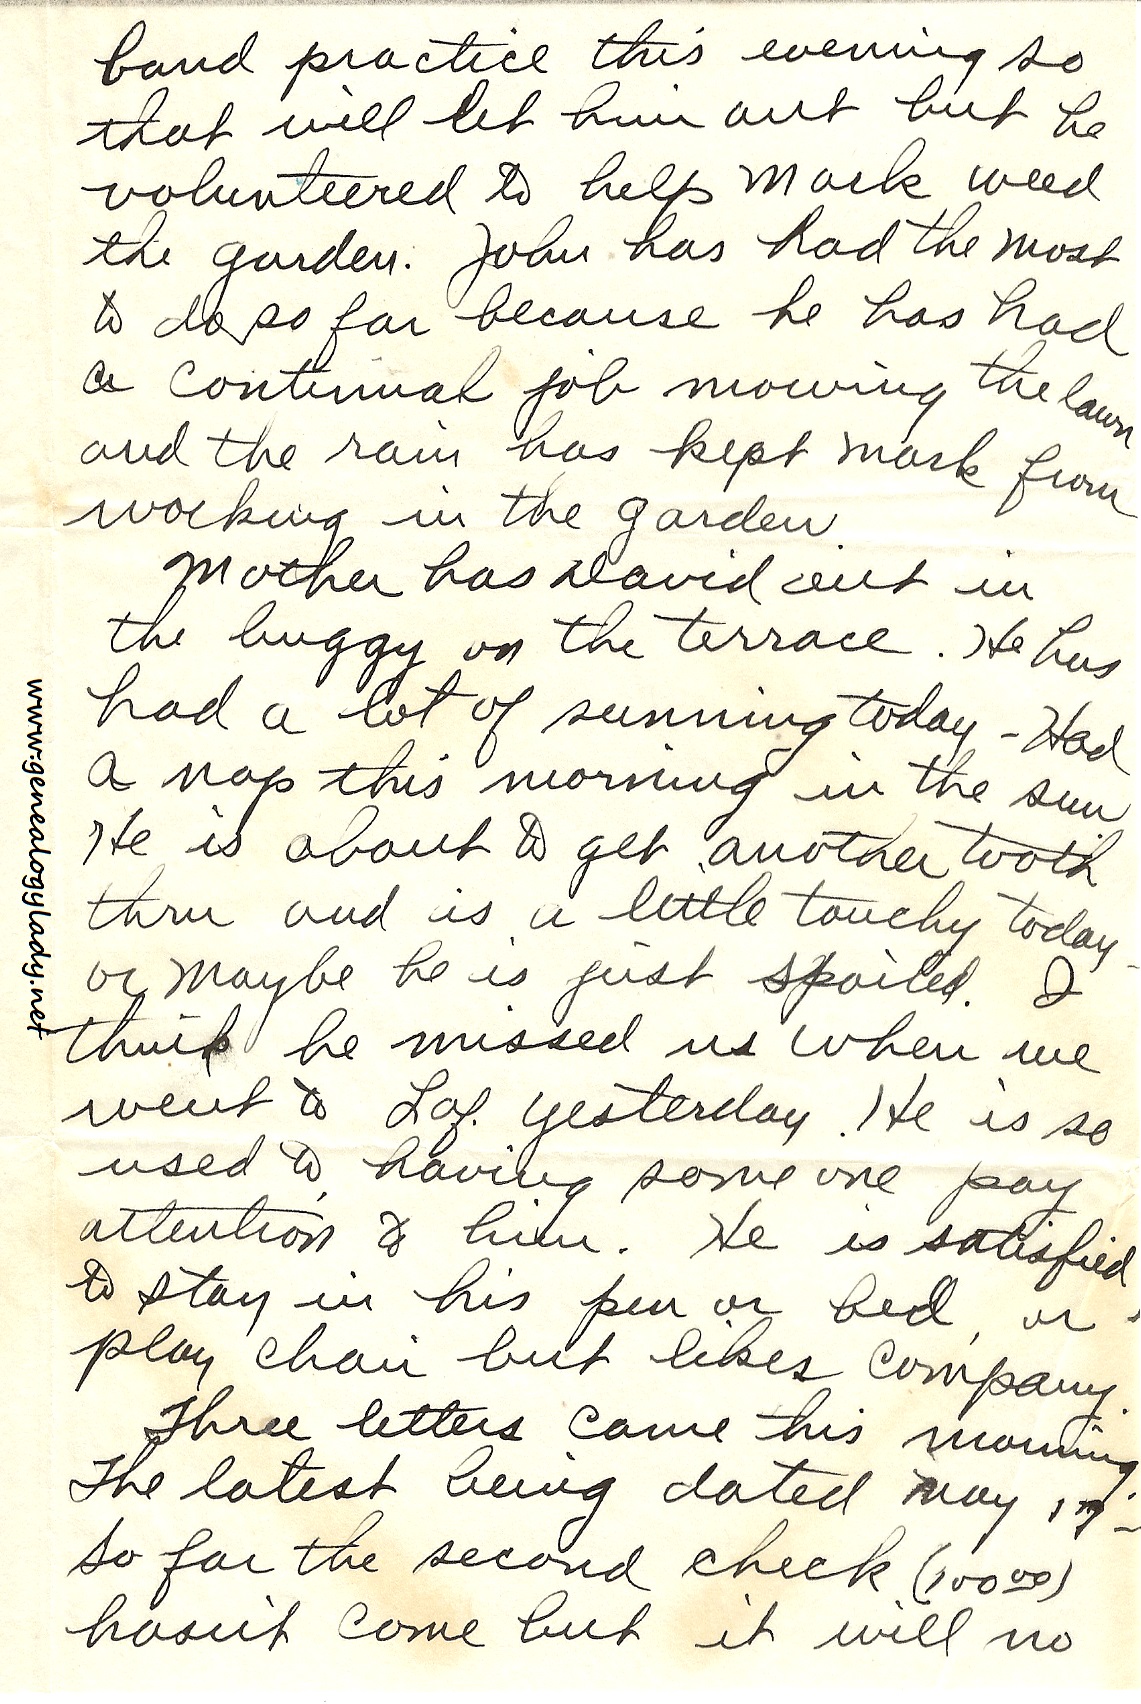 band practice this evening so
that will let him out but he
volunteered to help Mark weed
the garden. John has had the most
to do so far because he has had
a continual job mowing the lawn
and the rain has kept Mark from
working in the garden.
Mother has David out in
the buggy on the terrace. He has
had a lot of sunning today - Had
a nap this morning in the sun
He is about to get another tooth
thru and is a little touchy today -
or maybe he is just spoiled. I
think he missed us when we
went to Laf. yesterday. He is so
used to having some one pay
attention to him. He is satisfied
to stay in his pen or bed, or
play chair but likes company.
Three letters came this morning.
The latest being dated May 17 -
So far the second check (100 00)
hasn't come but it will no
www.genealogylady.net